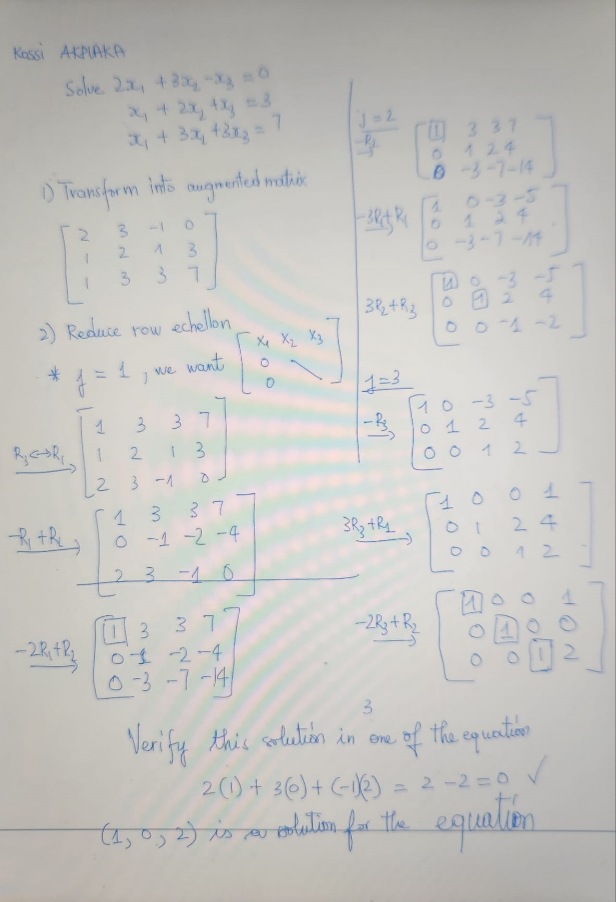 Kossi AKPLAKA
Solve 2x₁ + 3x₂ - x₃ = 0
x₁ + 2x₂ + x₃ = 3
x₁ + 3x₂ + 3x₃ = 7
1) Transform into augmented matrix
2 3 -1 0
1 2 1 3
1 3 3 7
2) Reduce row echellon
* j = 1, we want
x₁ x₂ x₃
0
0
R₃ ↔ R₁
1 3 3 7
1 2 1 3
2 3 -1 0
-R₁ + R₂
1 3 3 7
0 -1 -2 -4
2 3 -1 0
-2R₁ + R₂
1 3 3 7
0 -1 -2 -4
0 -3 -7 -14
j = 2
-R₂
1 3 3 7
0 1 2 4
0 -3 -7 -14
1 0 -3 -5
0 1 2 4
0 -3 -7 -14
3R₂ + R₃
1 0 -3 -5
0 1 2 4
0 0 -1 -2
j = 3
-R₃
1 0 -3 -5
0 1 2 4
0 0 1 2
3R₃ + R₁
1 0 0 1
0 1 2 4
0 0 1 2
-2R₃ + R₂
1 0 0 1
0 1 0 0
0 0 1 2
3
Verify this solution in one of the equation
2(1) + 3(0) + (-1)(2) = 2 - 2 = 0 ✓
(1, 0, 2) is a solution for the equation